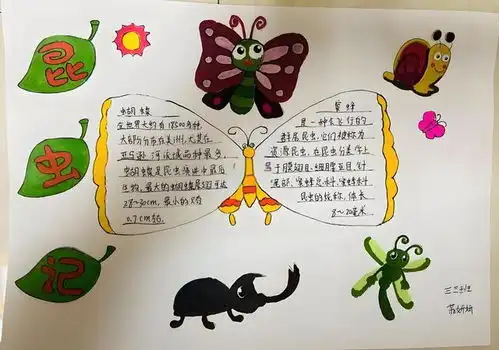 昆
虫
记
蝴蝶
全世界大约有18500多种
大部分分布在美洲,尤其在
亚马逊河流域品种最多,
蝴蝶是昆虫演进中最后
28~30cm,最小的只有
0.7cm
蜜蜂
是一种会飞行的
群居昆虫,它们被称为
资源昆虫,在昆虫分类学上
属于膜翅目、细腰亚目、针
尾部、蜜蜂总科、蜜蜂科
昆虫的统称,体长
8~20毫米